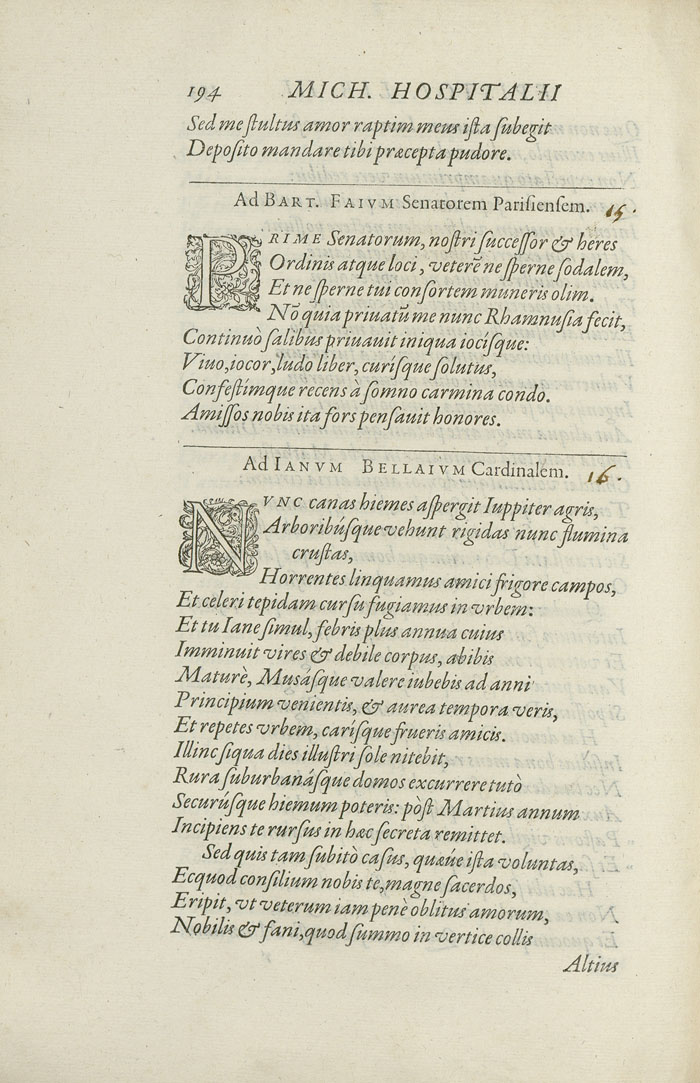 194 MICH. HOSPITALII
Sed me ſtultus amor raptim meus iſta ſubegit
Depoſito mandare tibi præcepta pudore.
Ad BART. FAIVM Senatorem Pariſienſem. 15.
PRIME Senatorum, noſtri ſucceſſor & heres
Ordinis atque loci, veterē ne ſperne ſodalem,
Et ne ſperne tui conſortem muneris olim.
Nō quia priuatū me nunc Rhamnuſia fecit,
Continuò ſalibus priuauit iniqua iocíſque:
Viuo, iocor, ludo liber, curíſque ſolutus,
Confeſtímque recens à ſomno carmina condo.
Amiſſos nobis ita fors penſauit honores.
Ad IANVM BELLAIVM Cardinalem. 16.
NVNC canas hiemes aſpergit Iuppiter agris,
Arboribúſque vehunt rigidas nunc flumina
cruſtas,
Horrentes linquamus amici frigore campos,
Et celeri tepidam curſu fugiamus in vrbem:
Et tu Iane ſimul, febris plus annua cuius
Imminuit vires & debile corpus, abibis
Maturè, Muſáſque valere iubebis ad anni
Principium venientis, & aurea tempora veris,
Et repetes vrbem, caríſque frueris amicis.
Illinc ſiqua dies illuſtri ſole nitebit,
Rura ſuburbanáſque domos excurrere tutò
Securúſque hiemum poteris: pòſt Martius annum
Incipiens te rurſus in hæc ſecreta remittet.
Sed quis tam ſubitò caſus, quæúe iſta voluntas,
Ecquod conſilium nobis te, magne ſacerdos,
Eripit, vt veterum iam penè oblitus amorum,
Nobilis & fani, quod ſummo in vertice collis
Altius